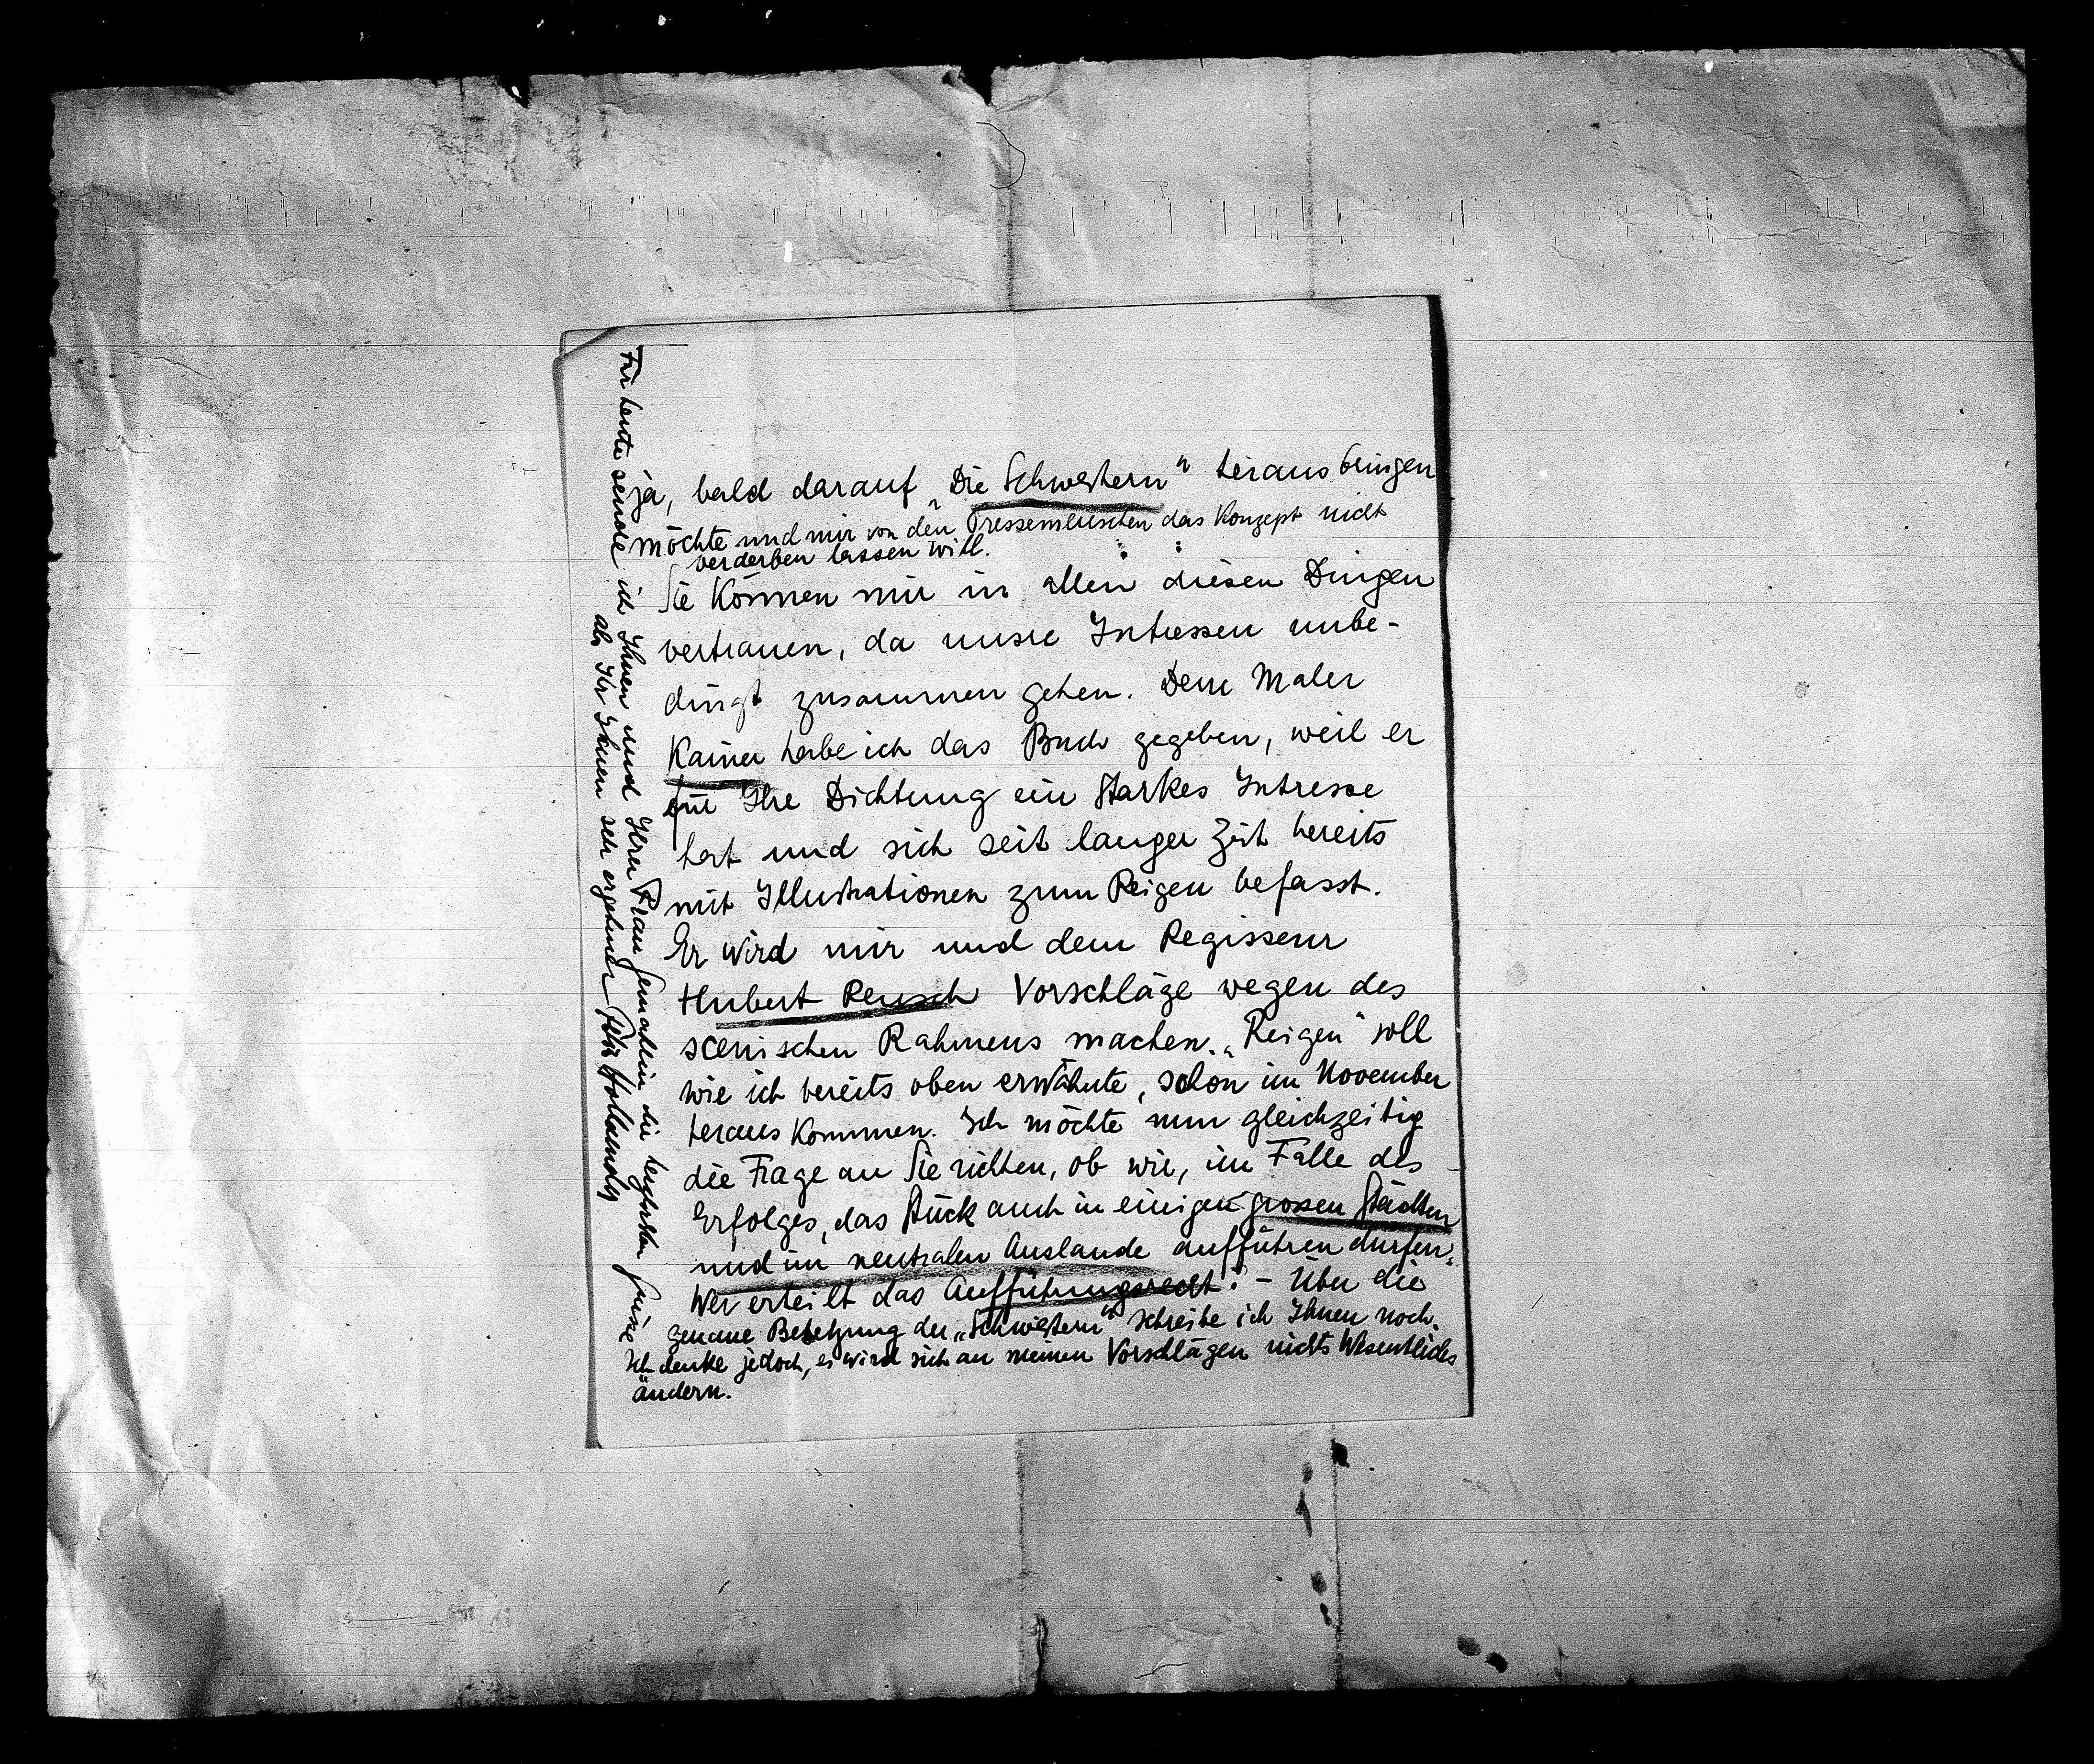 ja, bald darauf „Die Schwestern“ herausbringen
möchte und mir von den das Konzept nicht
verderben lassen will.
Sie können mir in allen diesen Dingen
vertrauen, da unsre Intressen unbe-
dingt zusammen gehen. Dem Maler
Kainer habe ich das Buch gegeben, weil er
für Ihre Dichtung ein starkes Intresse
hat und sich seit langer Zeit bereits
mit Illustrationen zum Reigen befasst.
Er wird mir und dem Regisseur
Hubert Reusch Vorschläge wegen des
scenischen Rahmens machen. „Reigen“ soll
wie ich bereits oben erwähnte, schon im November
heraus kommen. Ich möchte nun gleichzeitig
die Frage an Sie richten, ob wir, im Falle des
Erfolges, das Stück auch in einigen grossen Städten
und im neutralen Auslande aufführen dürfen.
Wer erteilt das Aufführungsrecht? – Über die
genaue Besetzung der „Schwestern“ schreibe ich Ihnen noch.
Ich denke jedoch, es wird sich an meinen Vorschlägen nichts Wesentliches
ändern.
Für heute sende ich Ihnen und Ihrer Frau Gemahlin die herzlichsten Grüsse
als Ihr Ihnen sehr ergebener Felix Hollaender